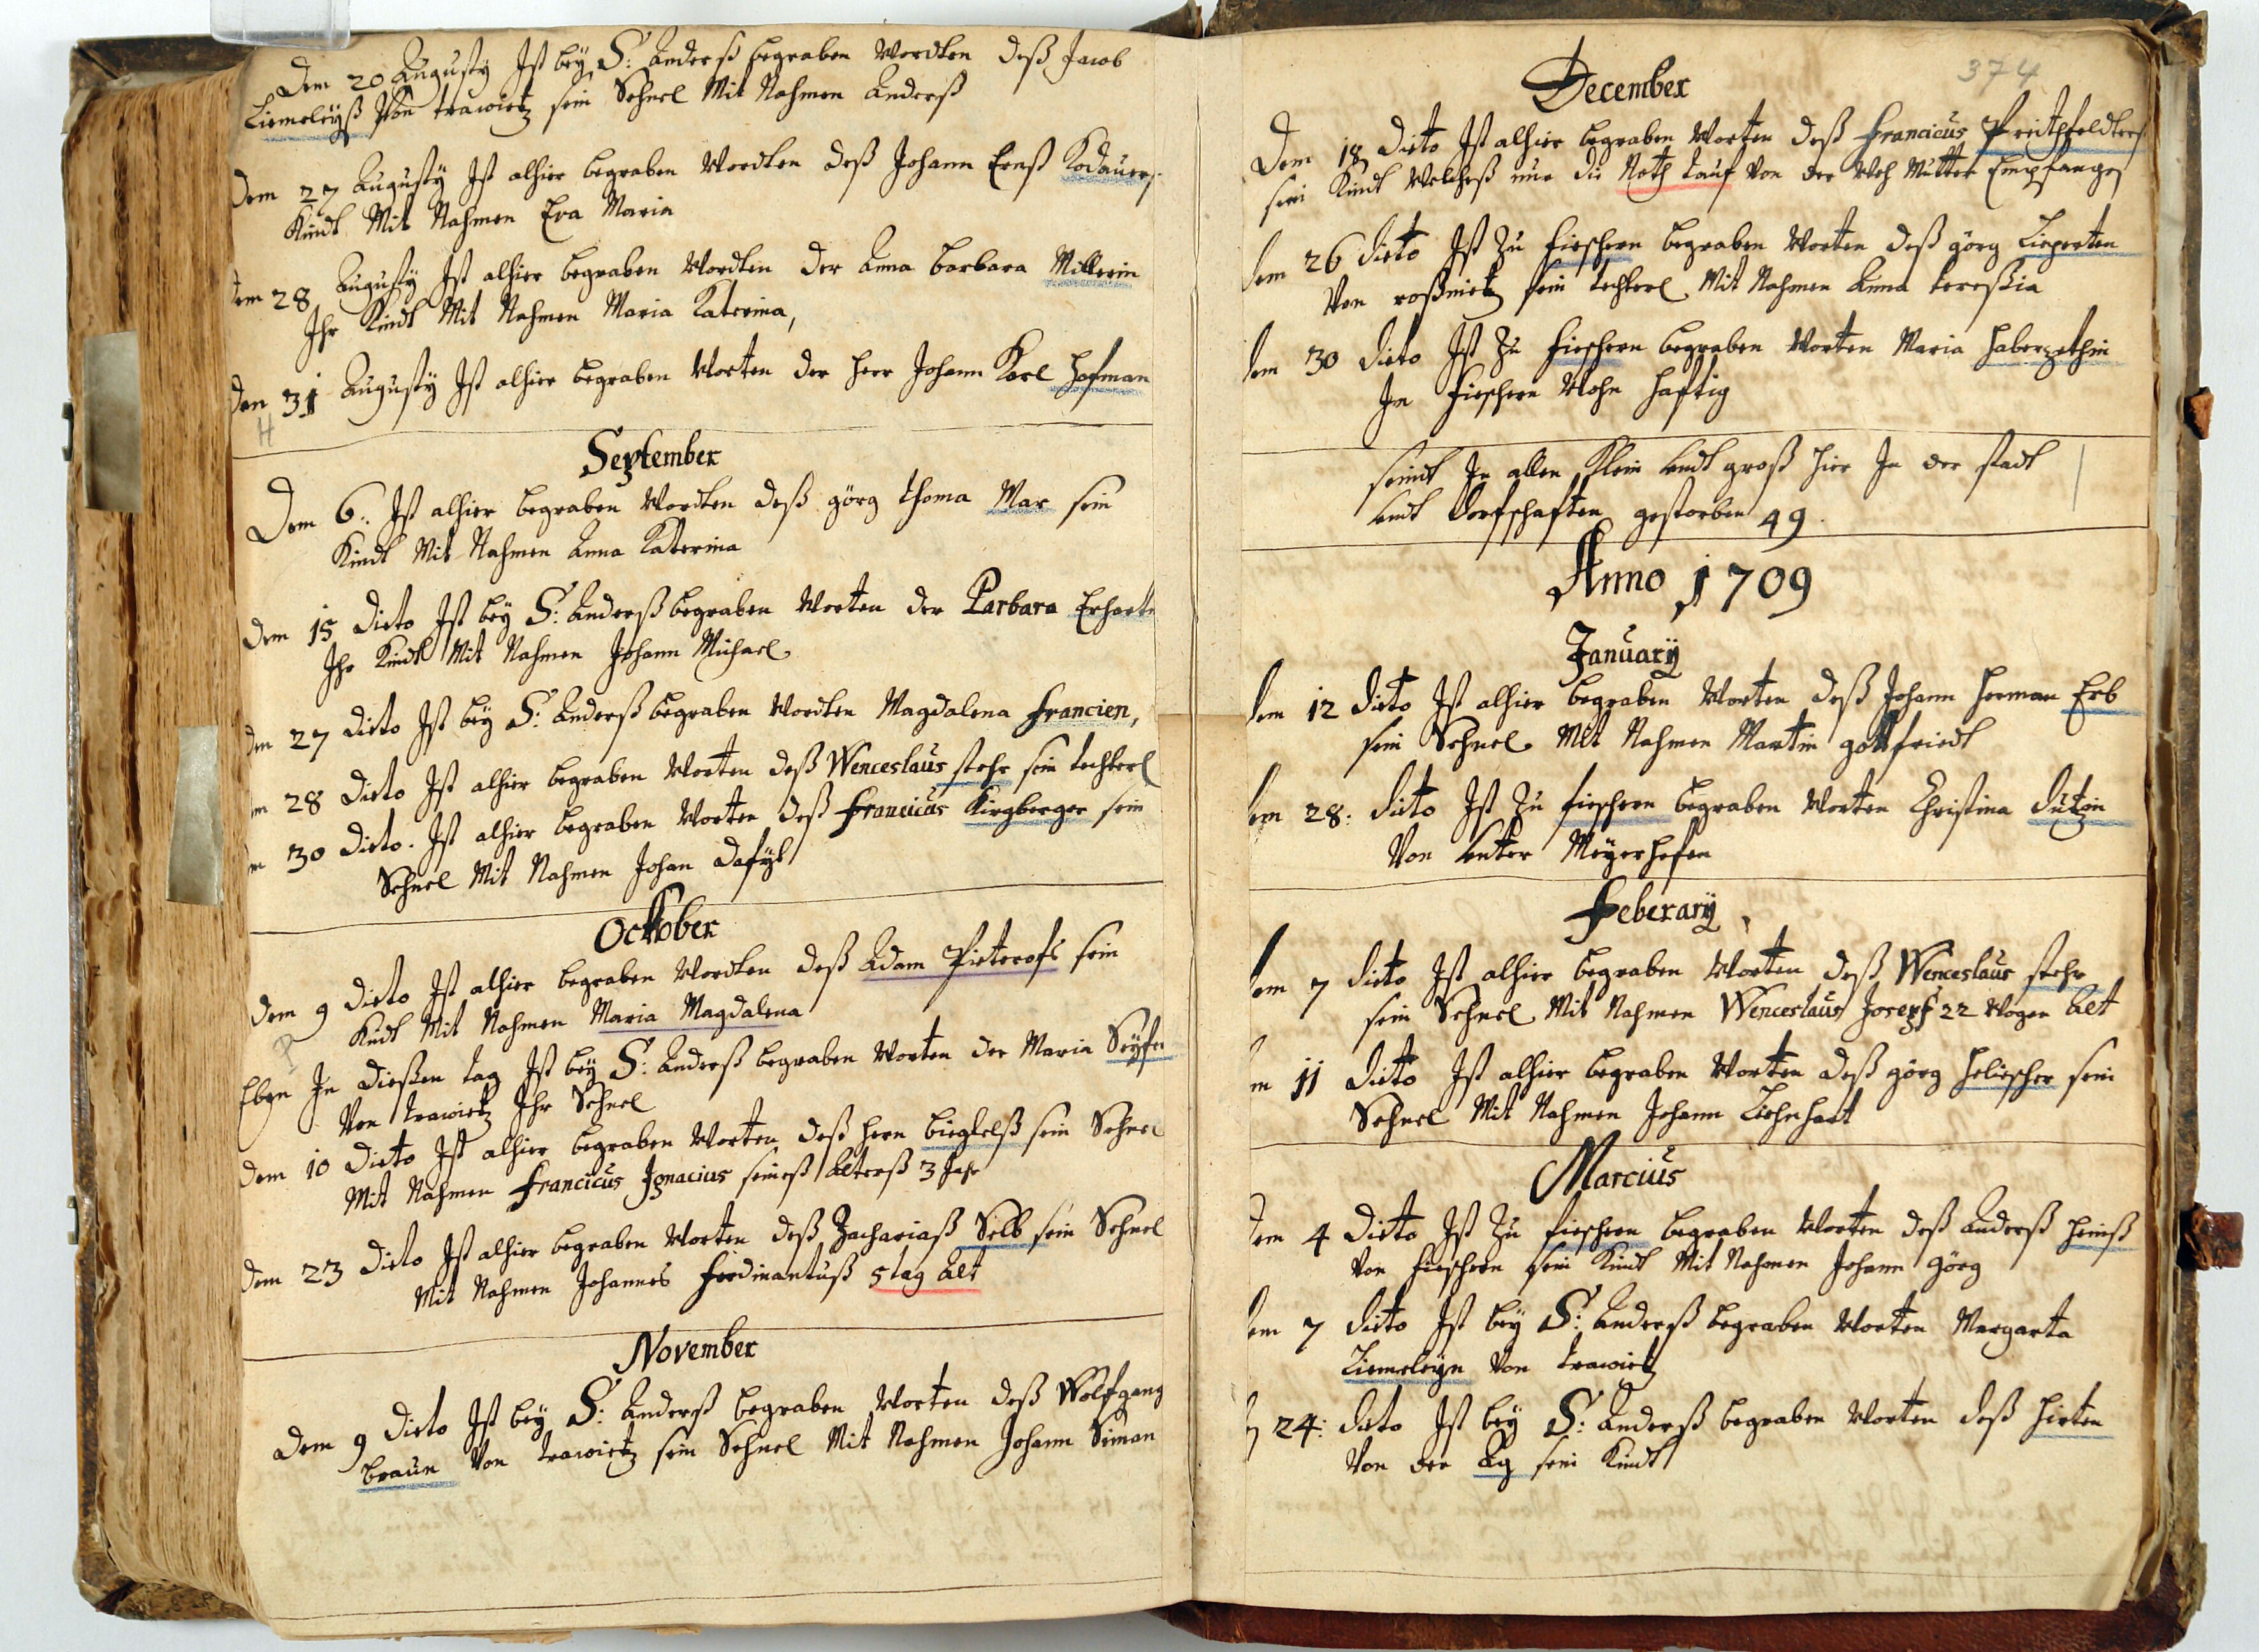 Dem 20 Augusty Ist bey S: Anderß begraben Wordten deß Jacob
Liemeleyß Von trawietz sein Sehnel Mit Nahmen Anderß
Dem 27 Augusty Ist alhier begraben Wordten deß Johann Ernst Kodauers
Kindt Mit Nahmen Eva Maria
Dem 28 Augusty Ist alhier begraben Wordten der Anna barbara Millerin
Ihr Kindt Mit Nahmen Maria Katerina,
Den 31 Augusty Ist alhier begraben Worten der Herr Johann Karl Hofman
H
September
Dem 6: Ist alhier begraben Wordten deß görg thoma Mar sein
Kindt Mit Nahmen Anna Katerina
Dem 15 Dieto Ist bey S: Anderß begraben Worten der Parbara Erharte
Ihr Kindt Mit Nahmen Johann Michael
Den 27 Dieto Ist bey S: Anderß begraben Wordten Magdalena francien,
m 28 Dieto Ist alhier begraben Worten deß Wenceslaus stehr sein techterl
m 30 Dieto. Ist alhier begraben Worten deß francicus Kirgberger sein
Sehnel Mit Nahmen Johan Dafyt
October
Dem 9 Dieto Ist alhier begraben Wordten deß Adam Pieterofs sein
Kindt Mit Nahmen Maria Magdalena
P
Eben In dießen tag Ist bey S: Anderß begraben Worten der Maria Seyfer
Von trawietz Ihr Sehnel
Dem 10 Dieto Ist alhier begraben Worten deß Hern bieglelß sein Sehnel
Mit Nahmen francicus Ignacius seineß Alterß 3 Jahr
Dem 23 Dieto Ist alhier begraben Worten deß Zachariaß Selb sein Sehnel
Mit Nahmen Johannes ferdinantuß 5 tag Alt
November
Dem 9 Dieto Ist bey S: Anderß begraben Worten deß Wolfgang
braun Von trawietz sein Sehnel Mit Nahmen Johann Siman
374
December
Dem 18 Dieto Ist alhier begraben Worten deß francicus Preitfeldters
sein Kindt Welcheß nur die Noth tauf Von der Weh Mutter Empfangen
Dem 26 Dieto Ist Zu fieschern begraben Worten deß görg Lieperten
Von roßnietz sein techterl Mit Nahmen Anna tereßia
Dem 30 Dieto Ist Zu fieschern begraben Worten Maria Haberzethin
In fieschern Wohn haftig
seindt In allen Klein undt groß hier In der stadt
undt Dorfschaften gestorben 49.
Anno 1709
January
Dem 12 Dieto Ist alhier begraben Worten deß Johann Herman Erb
sein Sehnel Mit Nahmen Martin gottfriedt
Dem 28: Dieto Ist Zu fieschern begraben Worten Christina Dutzin
Von unter Meyerhefen
Feberary
Dem 7 Dieto Ist alhier begraben Worten deß Wenceslaus stehr
sein Sehnel Mit Nahmen Wenceslaus Joseph 22 Wogen Alt
m 11 Dieto Ist alhier begraben Worten deß görg Heliescher sein
Sehnel Mit Nahmen Johann Liehnhart
Marcius
Dem 4 Dieto Ist Zu fieschern begraben Worten deß Anderß Heinß
Von fieschern sein Kindt Mit Nahmen Johann görg
Dem 7 Dieto Ist bey S: Anderß begraben Worten Margarta
Liemeleyn Von trawietz
24: Dieto Ist bey S: Anderß begraben Worten deß Hirten
Von der Eg sein Kindt